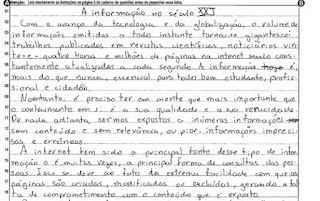 Atenção: Leia atentamente as instruções na página 2 do caderno de questões antes de preencher essa folha.
A informação no século XXI
Com o avanço da tecnologia e da globalização, o volume de
informações emitidas a todo instante tornou-se gigantesco:
trabalhos publicados em revistas científicas, noticiários vin-
te e quatro horas e milhões de páginas na internet sendo cons-
tantemente atualizadas a cada segundo. A informação hoje é,
mais do que nunca, essencial para todo bom estudante, profis-
sional e cidadão.
Noentanto, é preciso ter em mente que mais importante que
o conteúdo em si é a sua qualidade e a sua veracidade.
De nada adianta, sermos expostos a inúmeras informações
sem conteúdo e sem relevância, ou pior, informações impreci-
sas e errôneas.
A internet tem sido a principal fonte desse tipo de infor-
mação e é muitas vezes, a principal forma de consultas das pes-
soas. Isso se deve ao fato da extrema facilidade com que as
páginas são criadas, modificadas ou excluídas, gerando a fal-
ta de comprometimento com o conteúdo que é exposto.